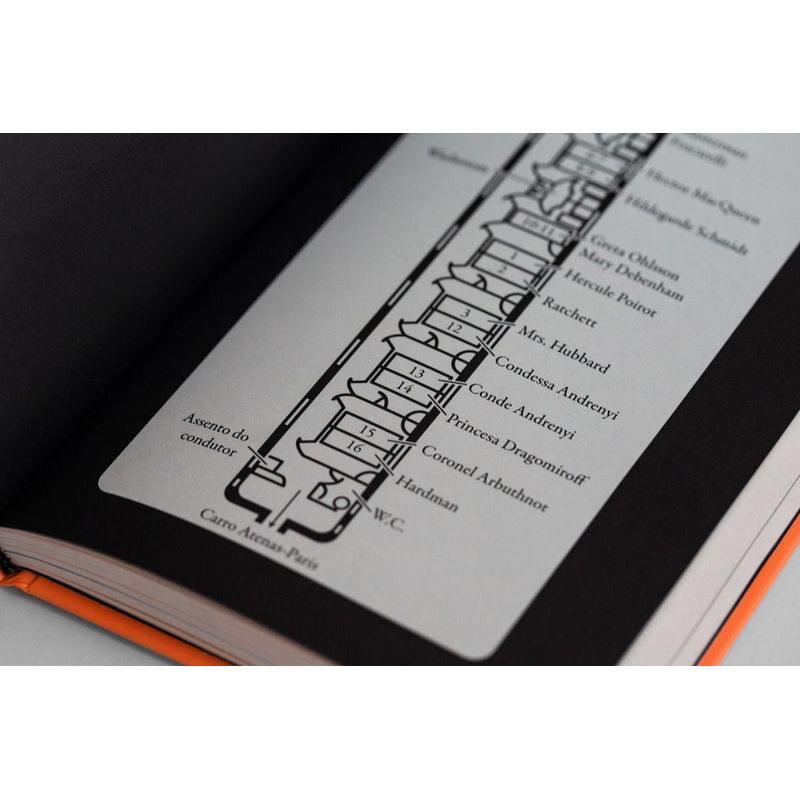 Foscarelli
Hector MacQueen
Hildegarde Schmidt
10-11
Greta Ohlsson
Mary Debenham
1
Hercule Poirot
2
Ratchett
3
Mrs. Hubbard
12
Condessa Andrenyi
13
Conde Andrenyi
14
Princesa Dragomiroff
15
Coronel Arbuthnot
16
Hardman
W.C.
Assento do
condutor
Carro Atenas-Paris